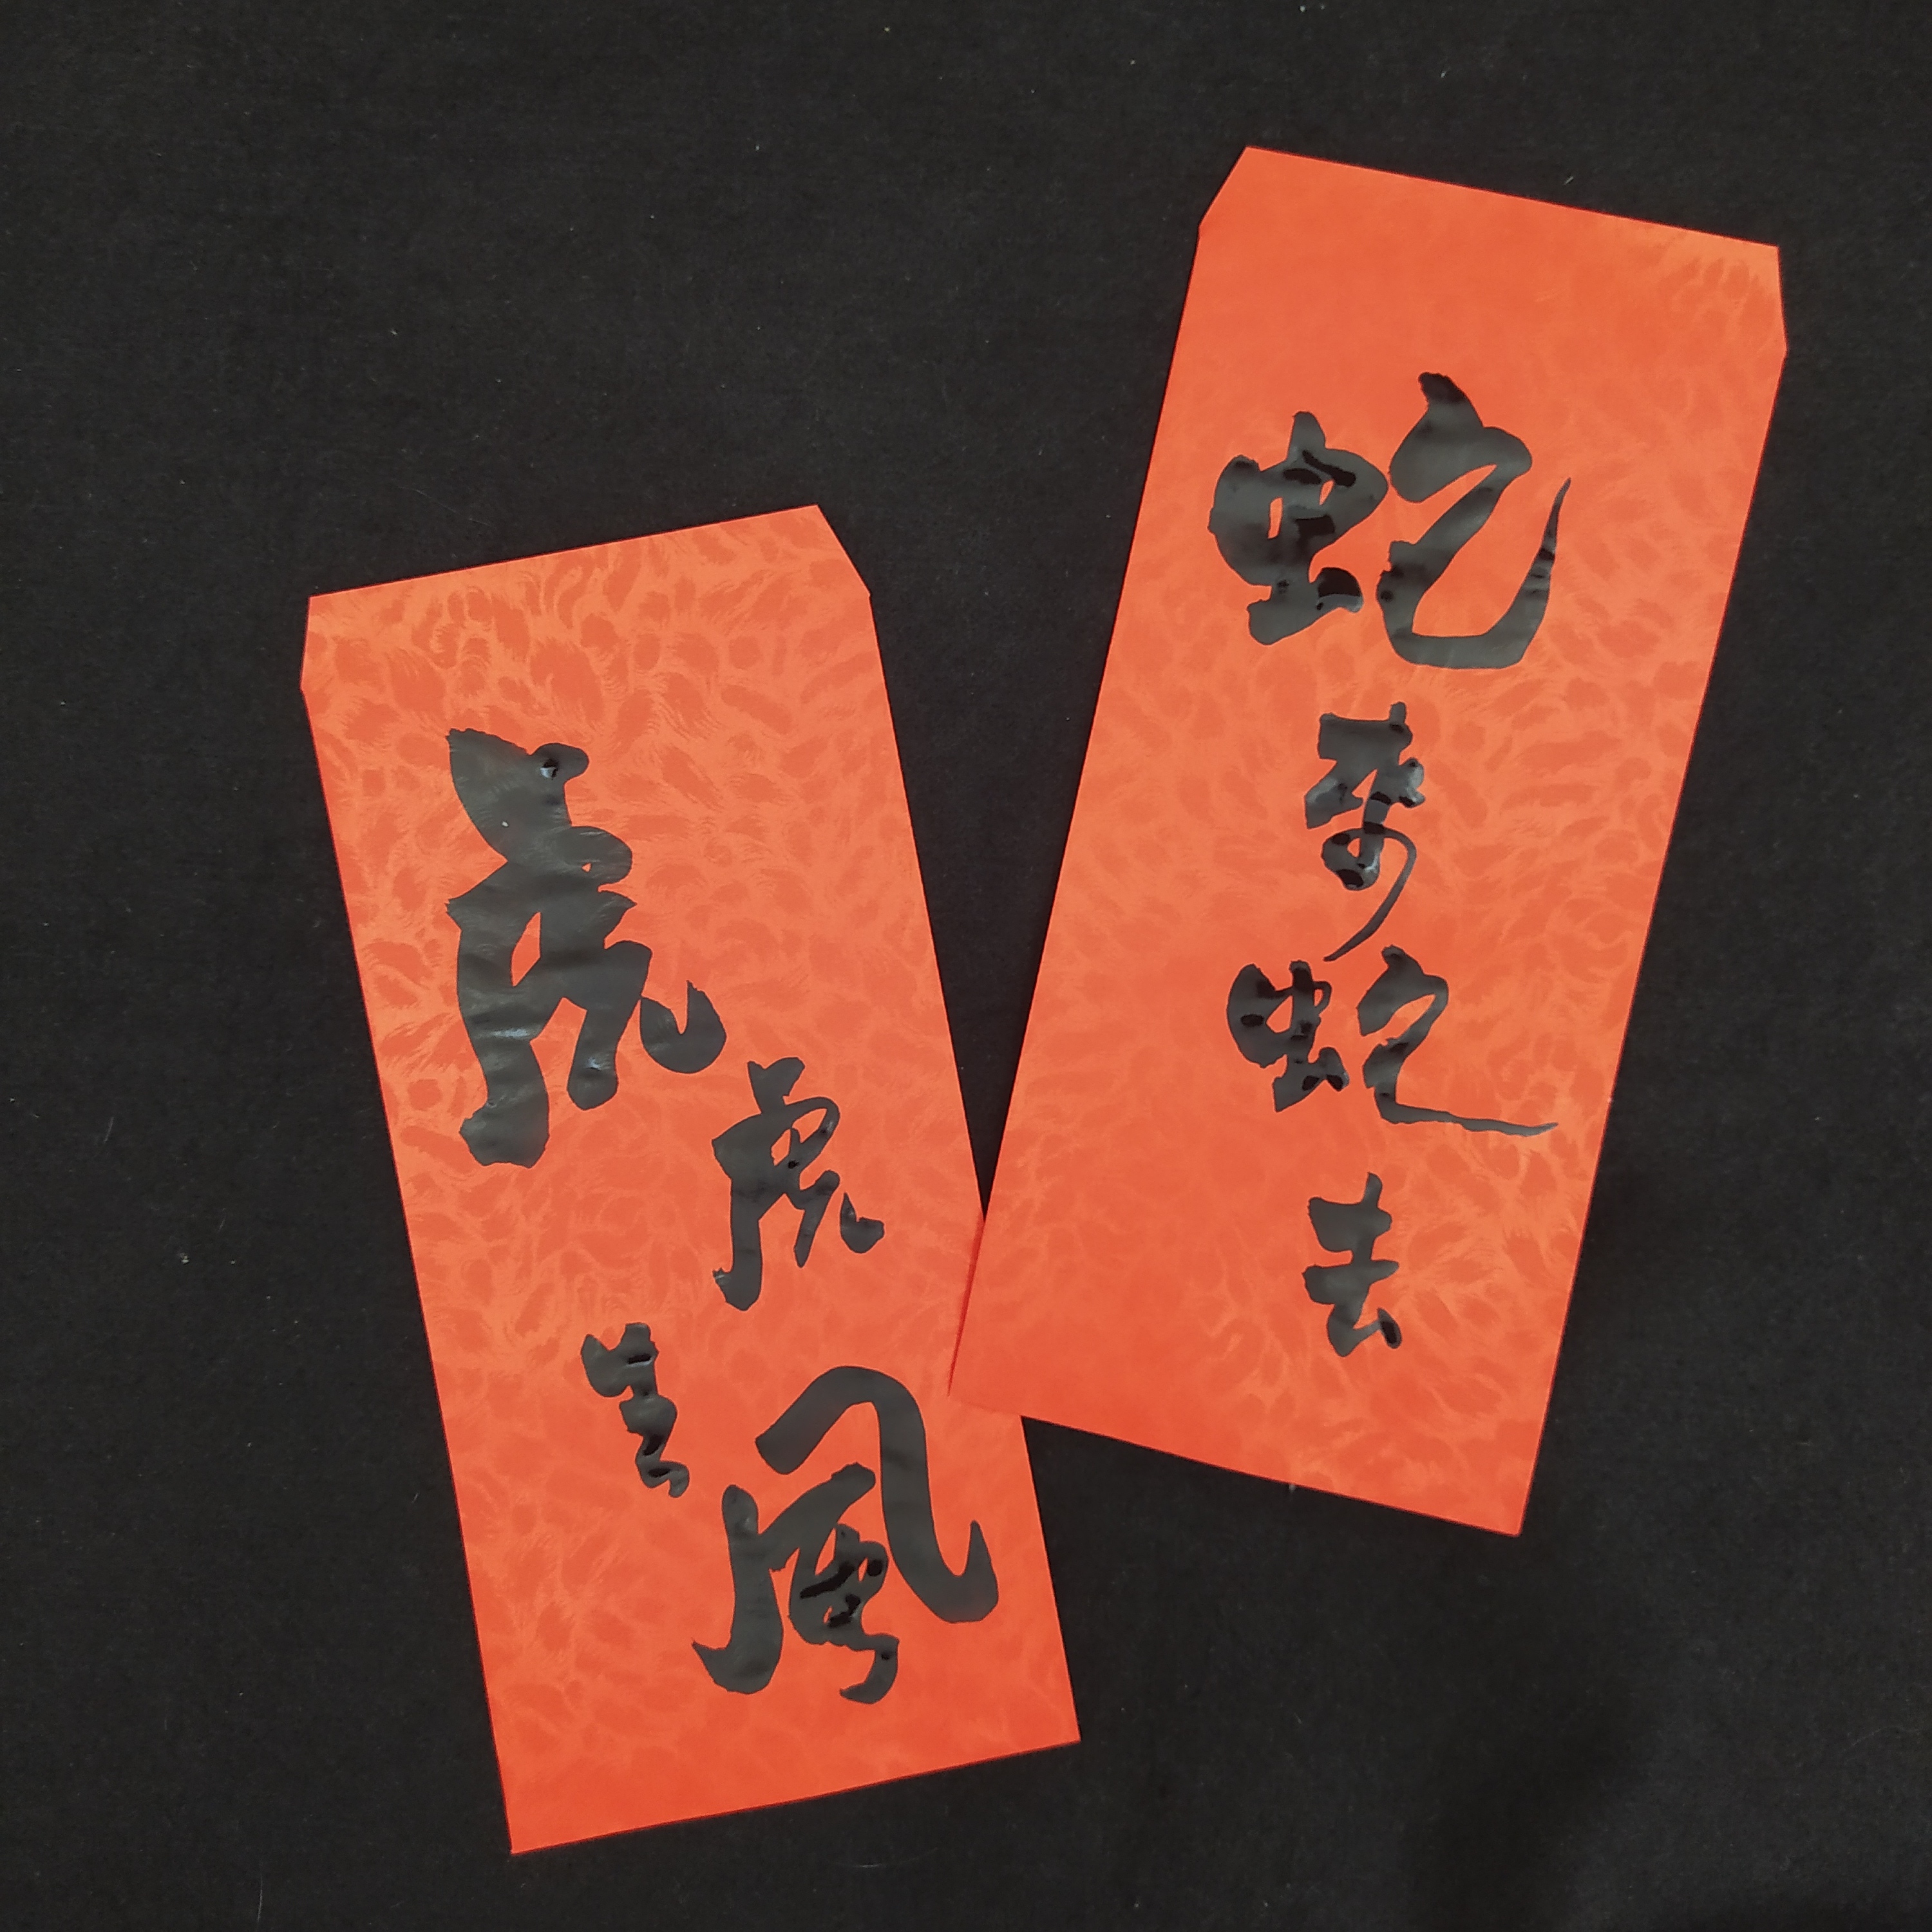 蛇來蛇去
虎虎生風